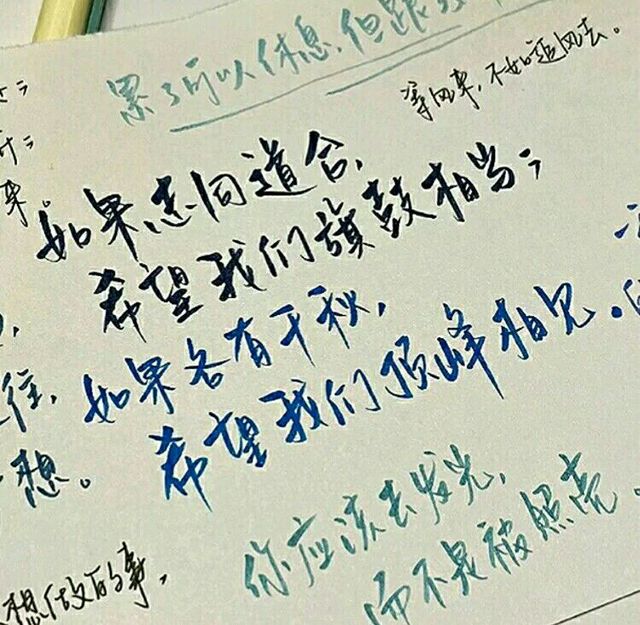 累了可以休息,但
等风来,不如追风去。
来。
如果志同道合,
希望我们旗鼓相当;
如果各有千秋,
往,
希望我们顶峰相见。
想。
你应该去发光,
而不是被照亮。
想做的事,